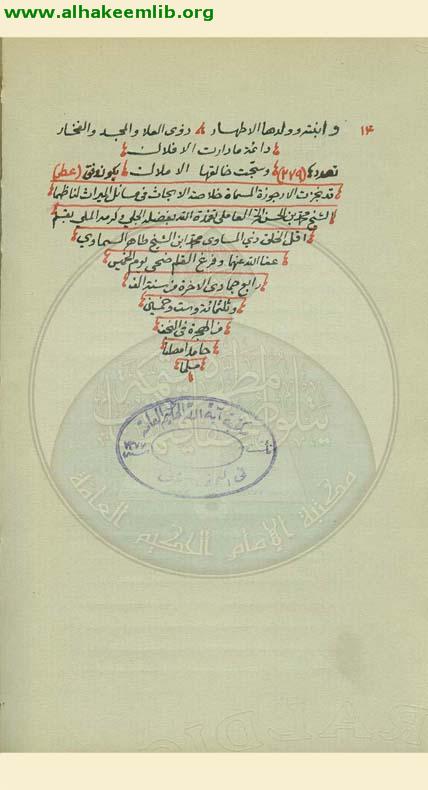 www.alhakeemlib.org
١٤
وابنته وولدها الاطهار ذوى العلا والمجد والفخار
دائمة ما دارت الافلاك
تعدادها (٢٧٩) وسبحت خالقها الاملاك
قد نجزت الارجوزة المسماة خلاصة الابحاث فى مسائل الميراث لناظمها
الشيخ محمد بن الحسن الحر العاملى تغمده الله بفضله بقلم
اقل الخلق محمد ابن الشيخ طاهر السماوي
عفا الله عنها وفرغ القلم ضحى يوم الخميس
رابع جمادى الاخرة من سنة الف
وثلثمائة وست وخمسين
من الهجرة فى النجف
حامدا مصليا
مسلما
مكتبة آية الله الحكيم العامة
مكتبة الإمام الحكيم العامة